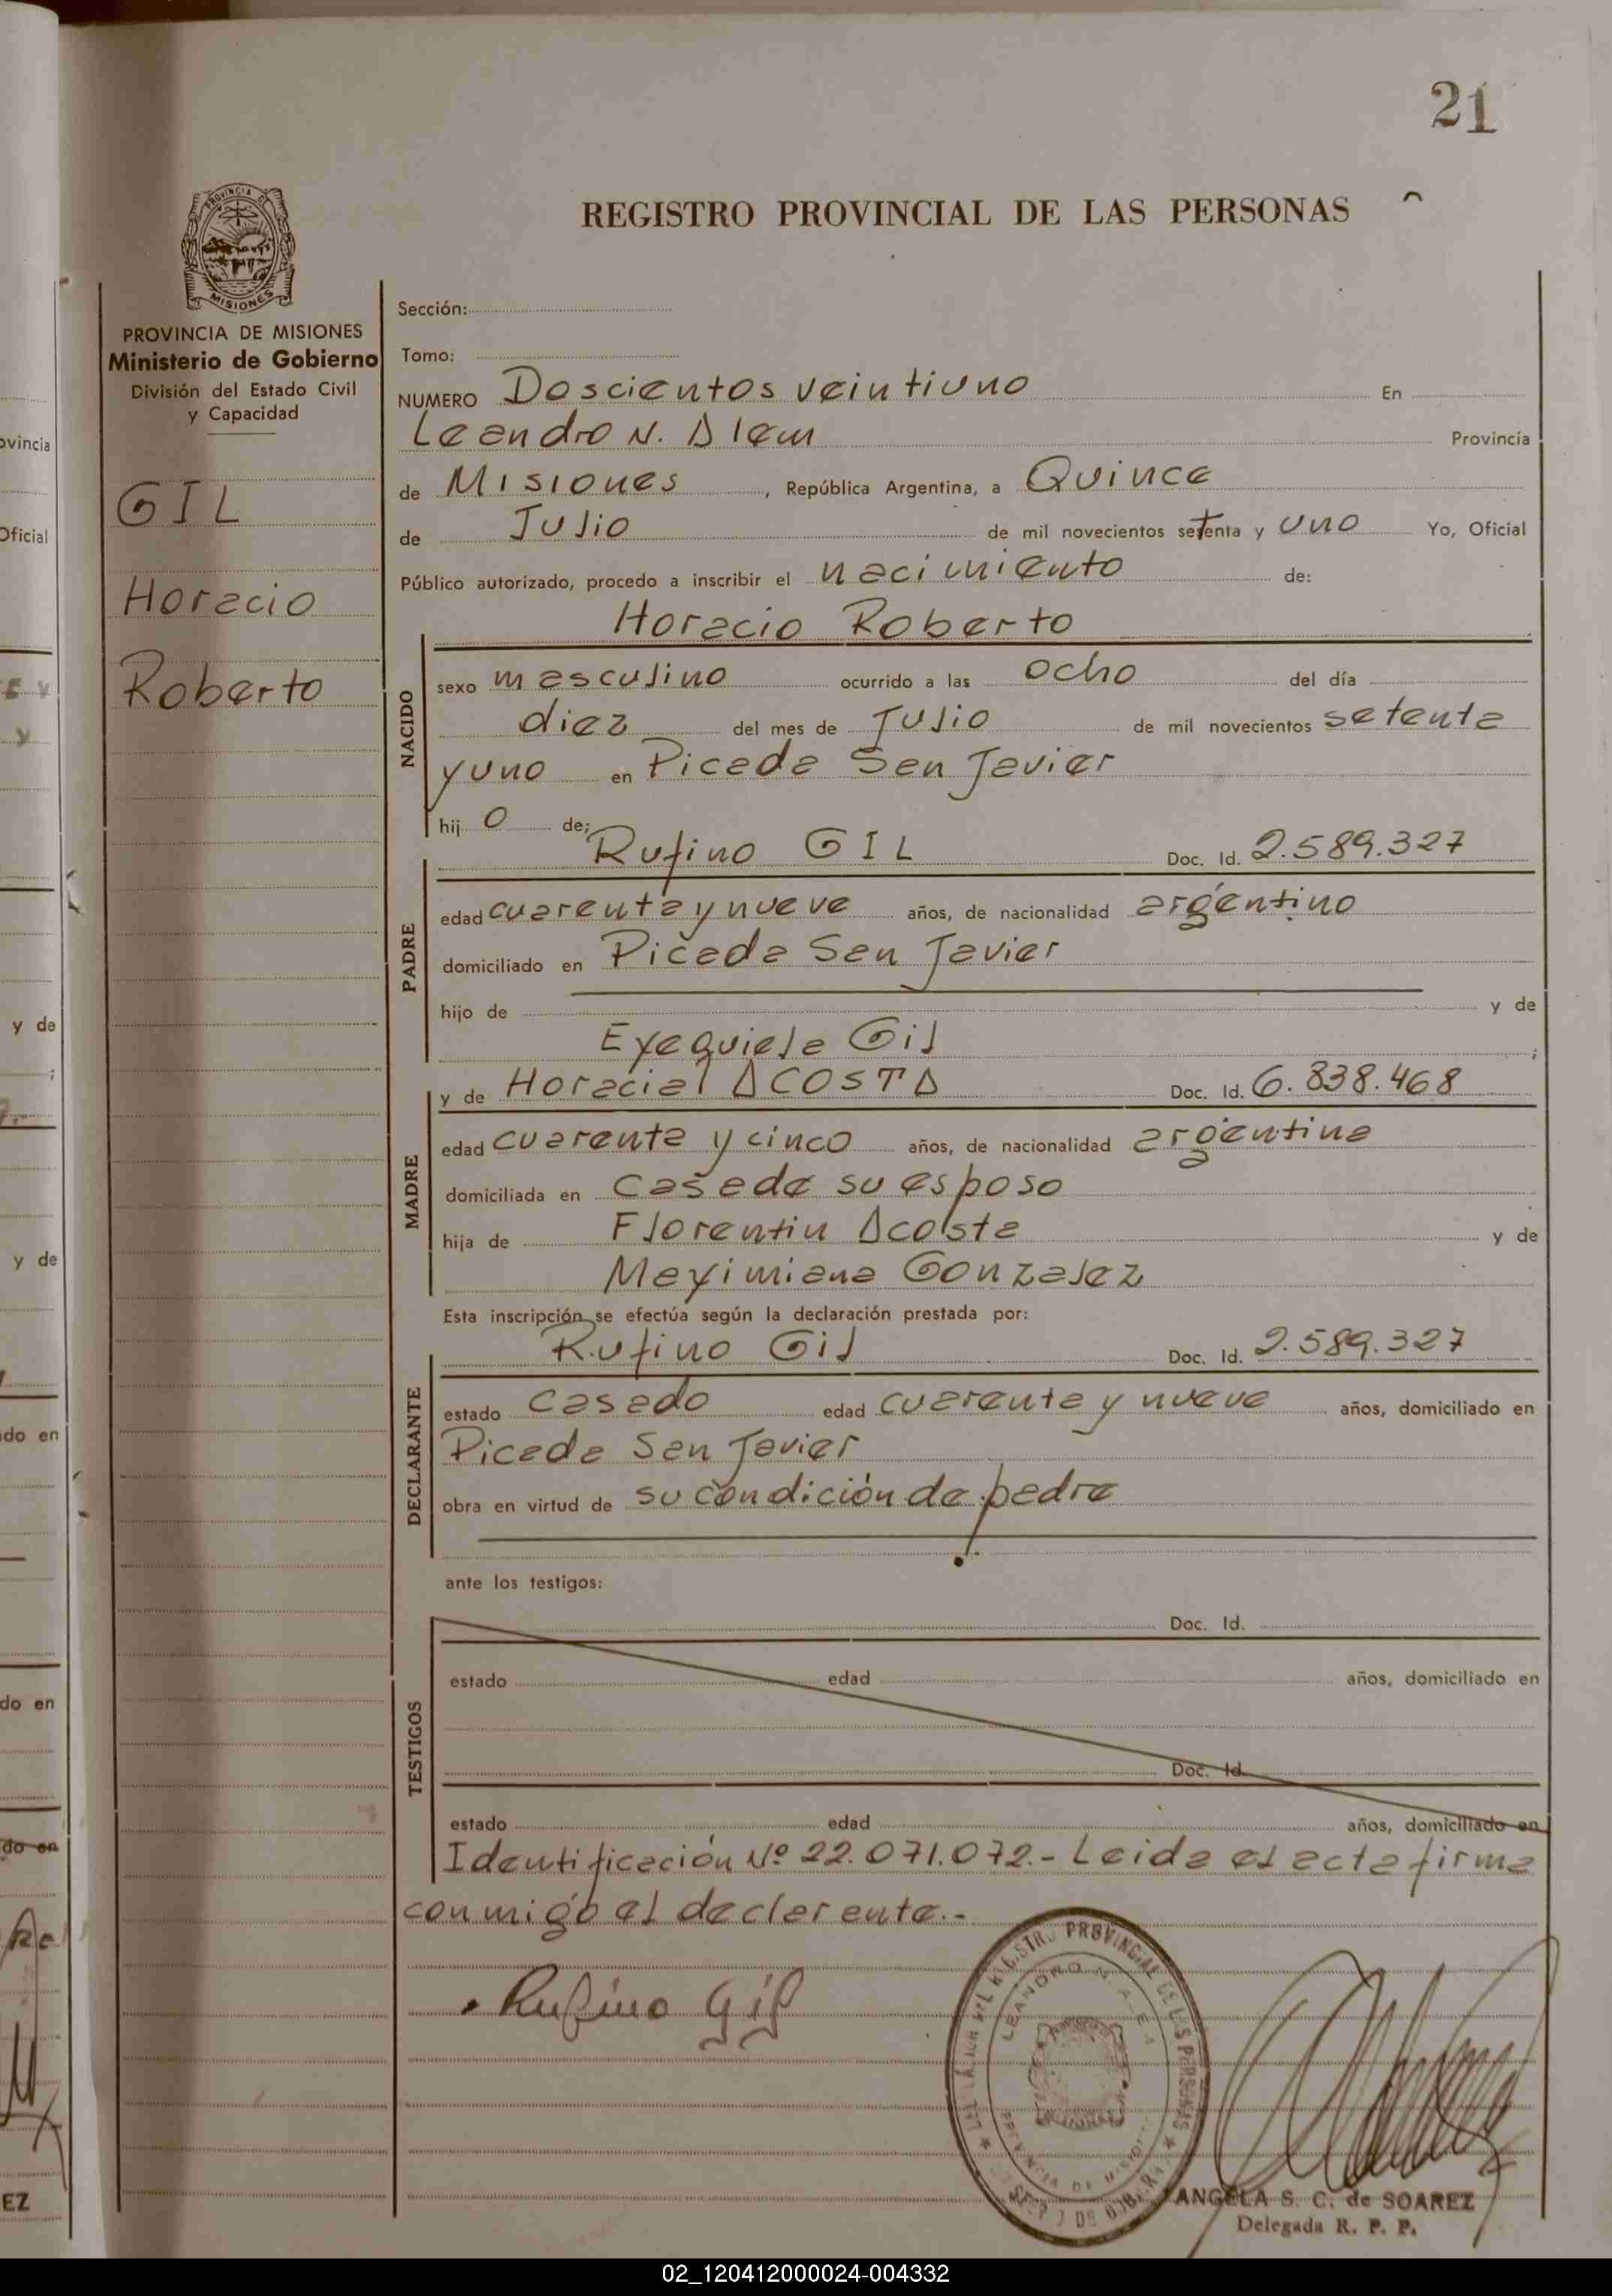 21
REGISTRO PROVINCIAL DE LAS PERSONAS
PROVINCIA DE MISIONES
Ministerio de Gobierno
División del Estado Civil
y Capacidad
GIL
Horacio
Roberto
Sección:
Tomo:
NUMERO Doscientos veintiuno En
Leandro N. Alem Provincia
de Misiones, República Argentina, a Quince
de Julio de mil novecientos setenta y uno Yo, Oficial
Público autorizado, procedo a inscribir el nacimiento de:
Horacio Roberto
NACIDO
sexo masculino ocurrido a las ocho del día
diez del mes de Julio de mil novecientos setenta
y uno en Picada San Javier
hijo de;
Rufino GIL Doc. Id. 2.589.327
PADRE
edad cuarenta y nueve años, de nacionalidad argentino
domiciliado en Picada San Javier
hijo de y de
Exequiela Gil ;
y de Horacia ACOSTA Doc. Id. 6.838.468
MADRE
edad cuarenta y cinco años, de nacionalidad argentina
domiciliada en Casa de su esposo
hija de Florentin Acosta y de
Maximiana Gonzalez
Esta inscripción se efectúa según la declaración prestada por:
Rufino Gil Doc. Id. 2.589.327
DECLARANTE
estado Casado edad cuarenta y nueve años, domiciliado en
Picada San Javier
obra en virtud de su condición de padre
ante los testigos:
TESTIGOS
Doc. Id.
estado edad años, domiciliado en
Doc. Id.
estado edad años, domiciliado en
Identificación Nº 22.071.072.- Leida el acta firma
conmigo el declarante.-
Rufino Gil
ANGELA S. C. de SOAREZ
Delegada R. P. P.
02_120412000024-004332